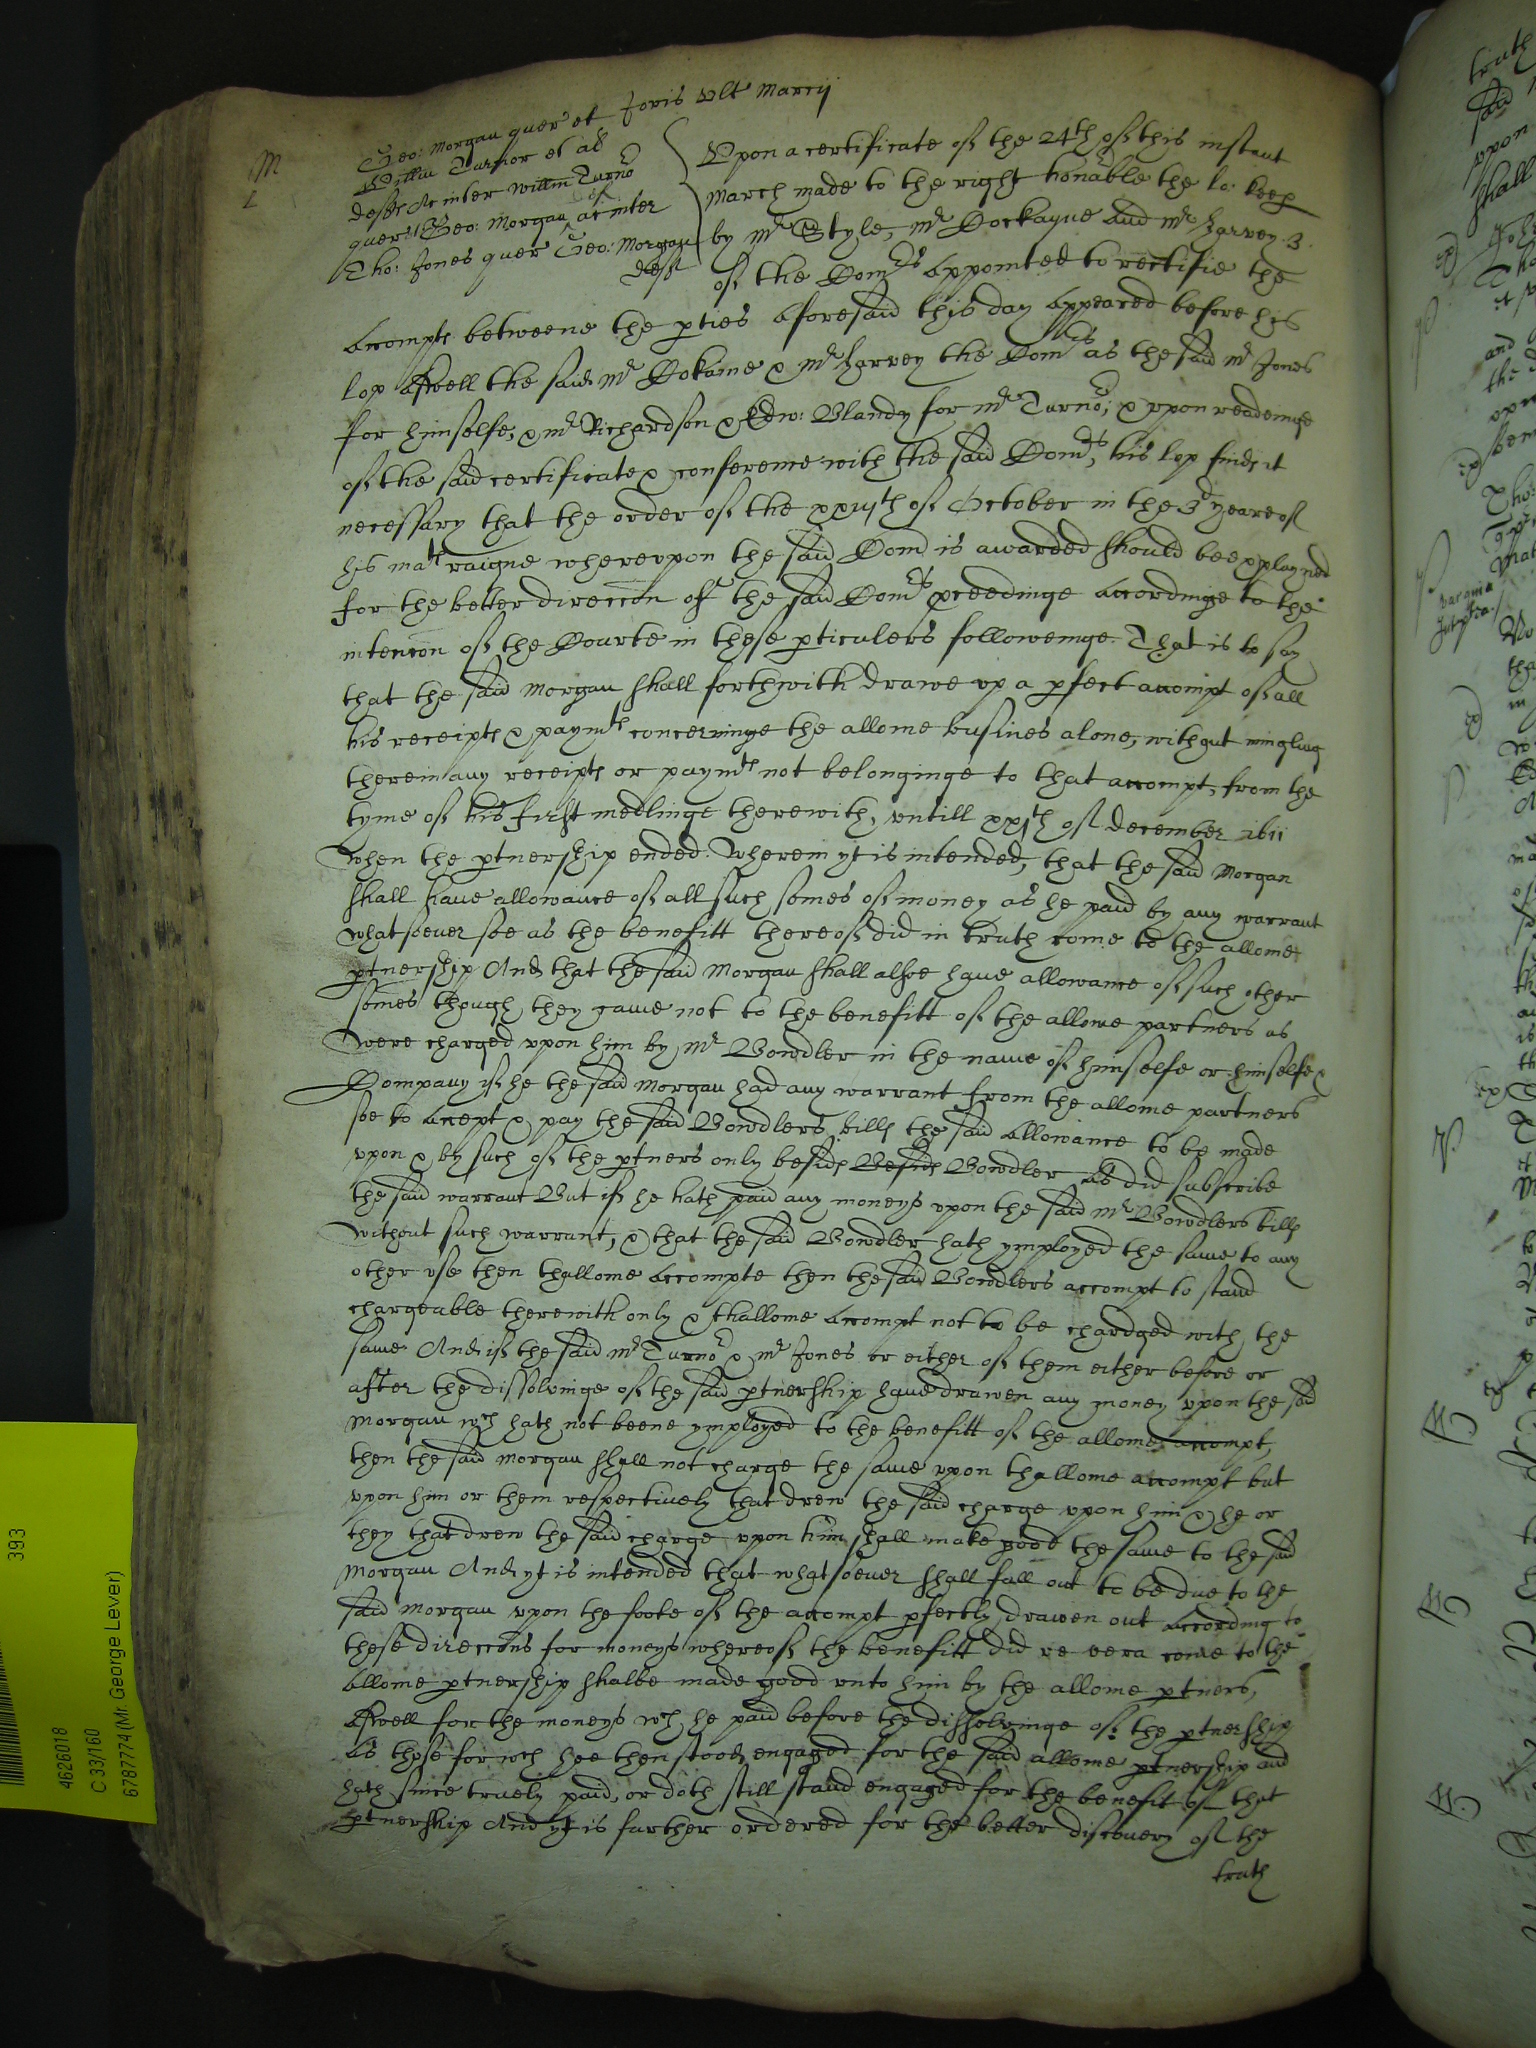 Jovis Ult Marcij
M
L
Geo: Morgan quer et
Willm Turnor et al
defts Ac inter Willm Turno
quer & Geo: Morgan def ac inter
Tho: Jones quer Geo: Morgan
deft
Upon a certificate of the 24th of this instant
March made to the right honable the lo: keep
by Mr Style, Mr Cockayne and Mr Harvey 3
of the Comrs appointed to rectifie the
accompts betweene the pties aforesaid this day appeared before his
lop aswell the said Mr Cokaine & Mr Harvey the Comrs as the said Mr Jones
for himselfe, & Mr Richardson & Edw: Blandy for Mr Turno; & vpon readeinge
of the said certificate & conference with the said Comrs, his lop finds it
necessary that the order of the xxiijth of October in the 3d yeare of
his mats raigne wherevpon the said Com is awarded should bee explayned
for the better direccon of the said Comrs pceedinge accordinge to the
intencon of the Courte in these pticulers followeinge. That is to say
that the said Morgan shall forthwith drawe vp a pfect accompt of all
his receipts & paymts concerninge the allome busines alone, without mingling
therein any receipts or paymts not belonginge to that accompt, from the
tyme of his first medlinge therewith, vntill xxjth of December 1611
When the ptnership ended. Wherein yt is intended, that the said Morgan
shall haue allowance of all such somes of money as he paid by any warrant
whatsoeuer soe as the benefitt thereof did in truth come to the allome
ptnership And that the said Morgan shall alsoe haue allowance of such other
somes though they came not to the benefitt of the allome partners as
Were charged vpon him by Mr Bowdler in the name of himselfe or himselfe &
Company if he the said Morgan had any warrant from the allome partners
soe to accept & pay the said Bowdlers bills the said allowance to be made
vpon & by such of the ptners only besids Besids Bowdler as did subscribe
the said warrant But if he hath paid any moneys vpon the said Mr Bowdlers bills
without such warrant, & that the said Bowdler hath ymployed the same to any
other vse then thallome accompte then the said Bowdlers accompt to stand
chargeable therewith only & thallome accompt not to be chardged with the
same And if the said Mr Turno & Mr Jones or either of them either before or
after the dissolvinge of the said ptnership haue drawen any money vpon the said
Morgan wch hath not beene ymployed to the benefitt of the allome accompt,
then the said Morgan shall not charge the same vpon thallome accompt but
vpon him or them respectively that drew the said charge vpon him & he or
they that drew the said charge vpon him shall make good the same to the said
Morgan And yt is intended that whatsoeuer shall fall out to be due to the
said Morgan vpon the foote of the accompt pfectly drawen out according to
these direccons for moneys whereof the benefitt did re vera come to the
Allome ptnership shalbe made good vnto him by the allome ptners,
Aswell for the moneys wch he paid before the dissolvinge of the ptnership
As those for wch hee then stood engaged for the said allome ptnership and
hath since truely paid, or doth still stand engaged for the benefit of that
ptnership And yt is further ordered for the better discovery of the
truth
393
4626018
C 33/160
6787774 (Mr. George Lever)